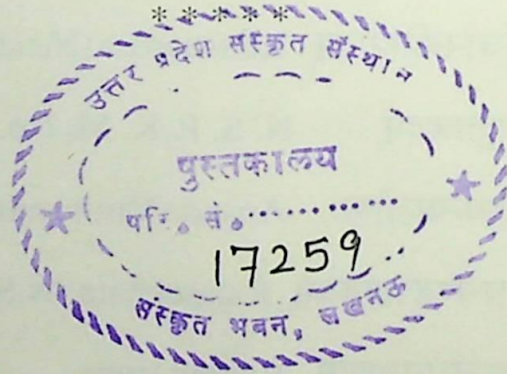 *****
उत्तर प्रदेश संस्कृत संस्थान
पुस्तकालय
परि. सं...............
17259
संस्कृत भवन, लखनऊ